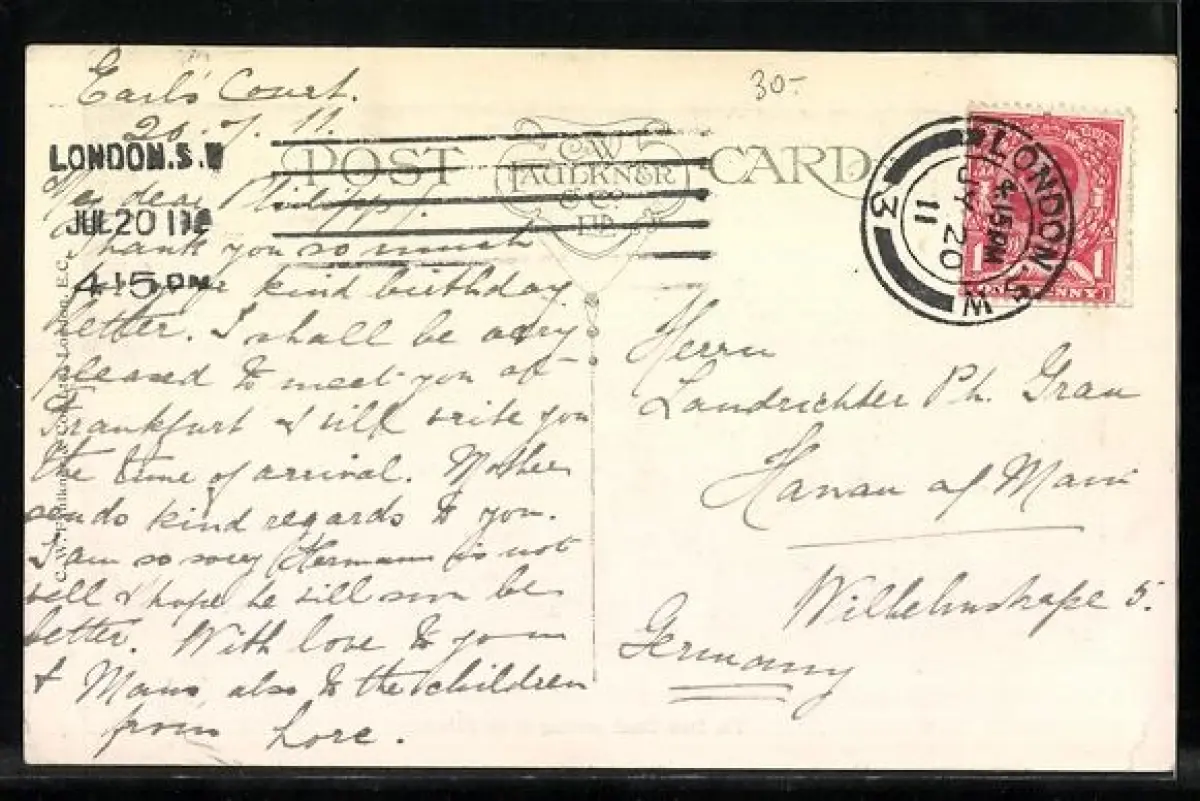 Earl's Court.
20. 7. 11.
LONDON.S.W
JUL 20 11
4.15 PM
My dear Philipp!
Thank you so much
for your kind birthday
letter. I shall be very
pleased to meet you at
Frankfurt & will write you
the time of arrival. Mother
sends kind regards to you.
I am so sorry Hermann is not
well & hope he will soon be
better. With love to you
& Maus also to the children
from Lore.
C. W. Faulkner & Co. Ltd., London, E.C.
POST CARD
C.W.
FAULKNER
& CO.
LTD
30-
LONDON. S.W
4.15 PM
JY 20
11
3
1 1
ONE PENNY
Herrn
Landrichter Ph. Grau
Hanau a/ Main
Wilhelmstraße 5.
Germany